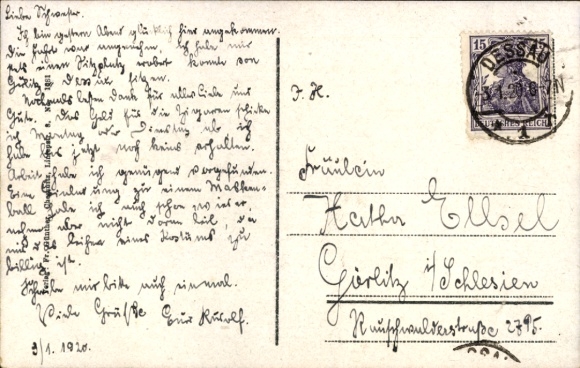 Liebe Schwester.
Ich bin gestern Abend glücklich hier angekommen.
Die Fahrt war angenehm. Ich habe mir
einen Sitzplatz erobert konnte von
sitzen.
Nochmals besten Dank für alles Liebe und
Gute. Das Geld für die Zigarren schicke
ich Montag oder Dienstag ab ich
habe bis jetzt noch keins erhalten.
Arbeit habe ich genügend vorgefunden.
Eine Einladung zu einem Masken-
ball habe ich auch schon
nehme aber nicht daran teil, da
mir das Leihen eines Kostüms zu
billig ist.
Schreibe mir bitte auch einmal.
Viele Grüße Euer Rudolf.
3/1. 1920.
15
DEUTSCHES REICH
DESSAU
1
F. H.
Fräulein
Hertha Ellsel
Görlitz i/Schlesien
Rauschwalderstraße 27